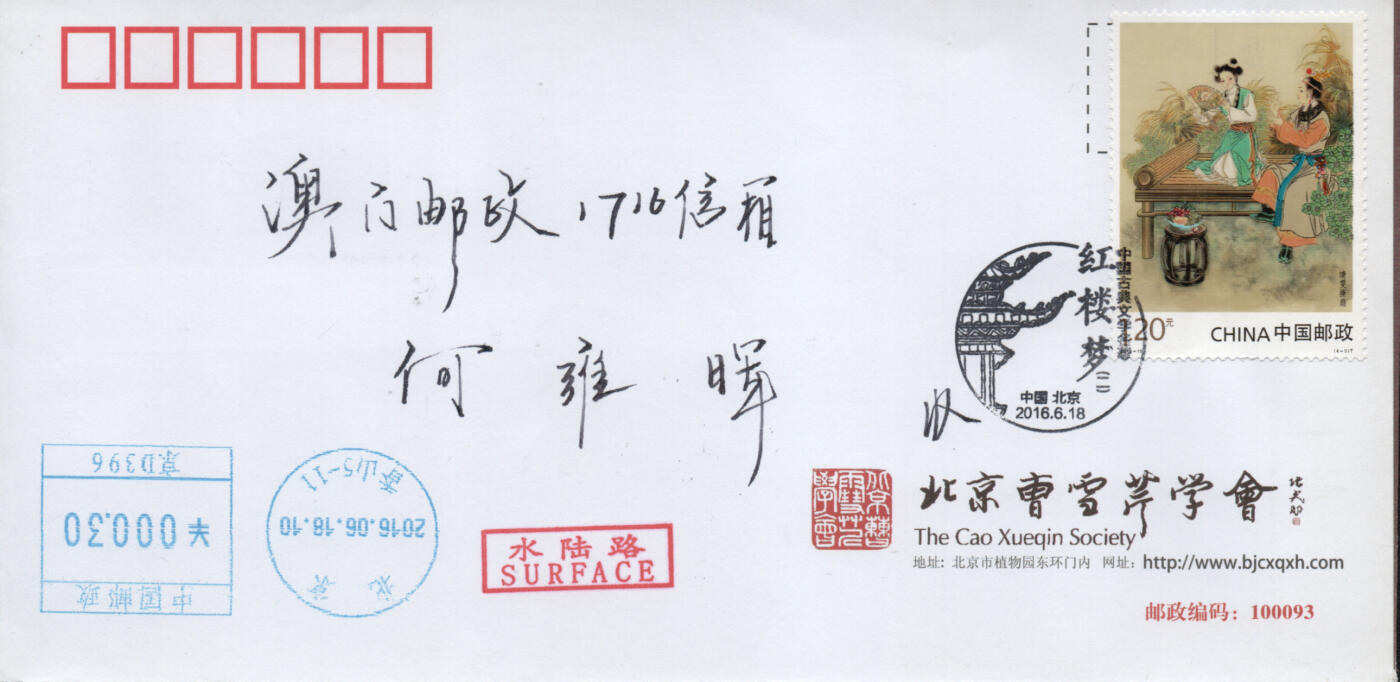 澳门邮政1716信箱
何雍晖
收
20元
CHINA 中国邮政
红楼梦(二)
中国古典文学名著
中国 北京
2016.6.18
京D396
¥000.30
中国邮政
香山5-11
2016.06.18.10
北京
水陆路
SURFACE
北京曹雪芹学會
北京曹雪芹學會
The Cao Xueqin Society
地址: 北京市植物园东环门内 网址: http://www.bjcxqxh.com
邮政编码: 100093